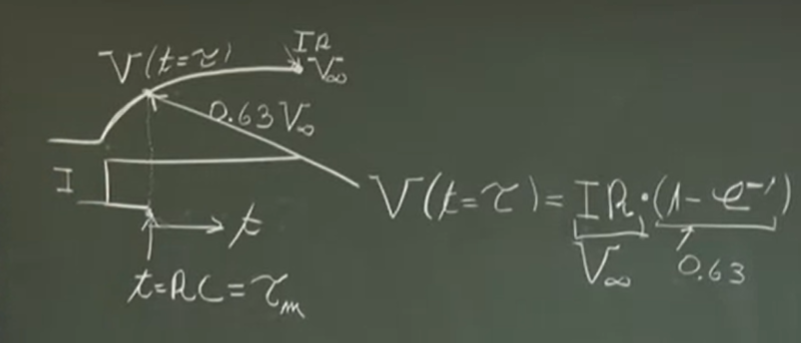 V(t=τ)
IR
V∞
0.63 V∞
I
t
t=RC=τm
V(t=τ)=IR·(1-e⁻¹)
V∞
0.63